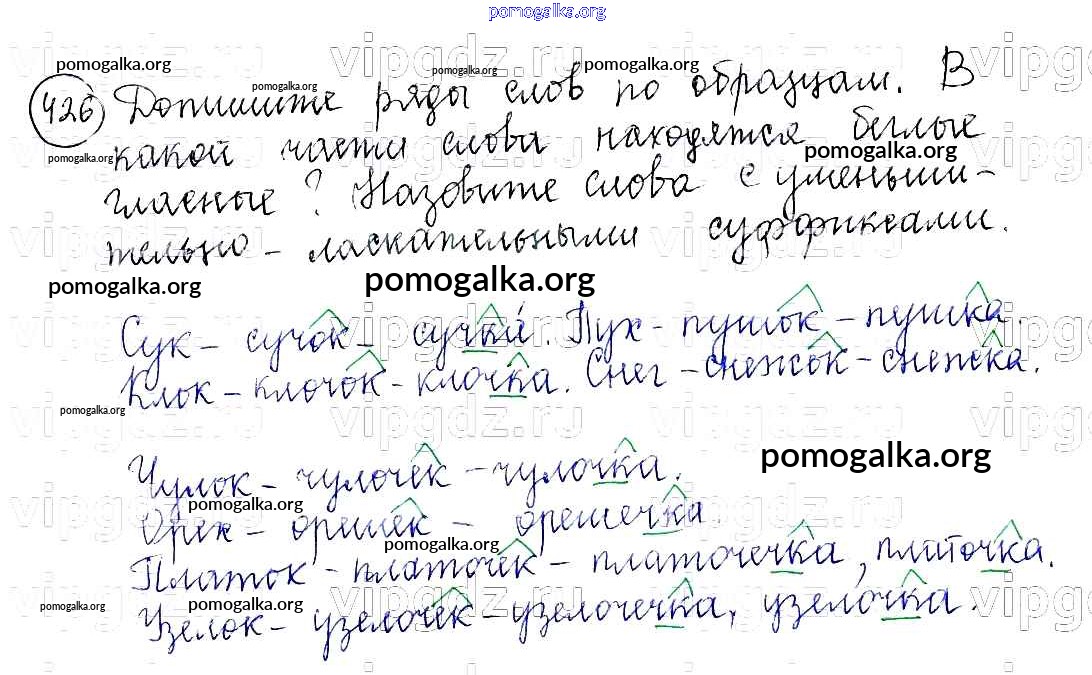 pomogalka.org
426 Допишите ряды слов по образцам. В
какой части слова находятся беглые
гласные? Назовите слова с уменьши-
тельно-ласкательными суффиксами.
pomogalka.org
pomogalka.org
Сук - сучок - сучки́. Пух - пушок - пушка.
Клок - клочок - клочка. Снег - снежок - снежка.
pomogalka.org
pomogalka.org
Чулок - чулочек - чулочка.
Орех - орешек - орешечка.
Платок - платочек - платочечка, платочка.
Узелок - узелочек - узелочечка, узелочка.